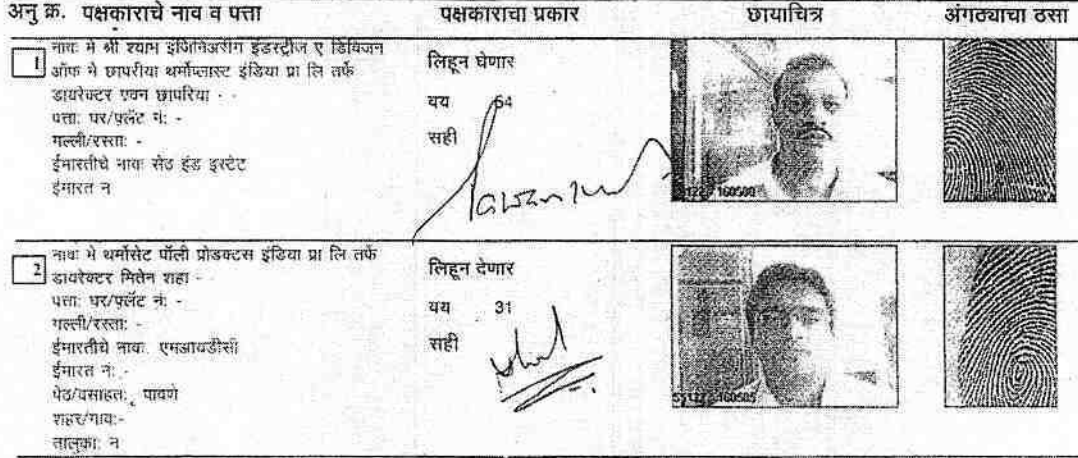 अनु क्र. पक्षकाराचे नाव व पत्ता पक्षकाराचा प्रकार छायाचित्र अंगठ्याचा ठसा
1 नावः मे श्री श्याम इंजिनिअरींग इंडस्ट्रीज ए डिविजन
ऑफ मे छापरीया थर्मोप्लास्ट इंडिया प्रा लि तर्फे
डायरेक्टर पवन छापरिया - -
पत्ताः घर/फ्लॅट नंः -
गल्ली/रस्ताः -
ईमारतीचे नावः सेठ इंड इस्टेट
ईमारत नं
लिहून घेणार
वय 54
सही
2 नावः मे थर्मोसेट पॉली प्रोडक्टस इंडिया प्रा लि तर्फे
डायरेक्टर मितेन शहा - -
पत्ताः घर/फ्लॅट नंः -
गल्ली/रस्ताः -
ईमारतीचे नावः एमआयडीसी
ईमारत नंः -
पेठ/वसाहतः पावणे
शहर/गावः-
तालुकाः न
लिहून देणार
वय 31
सही